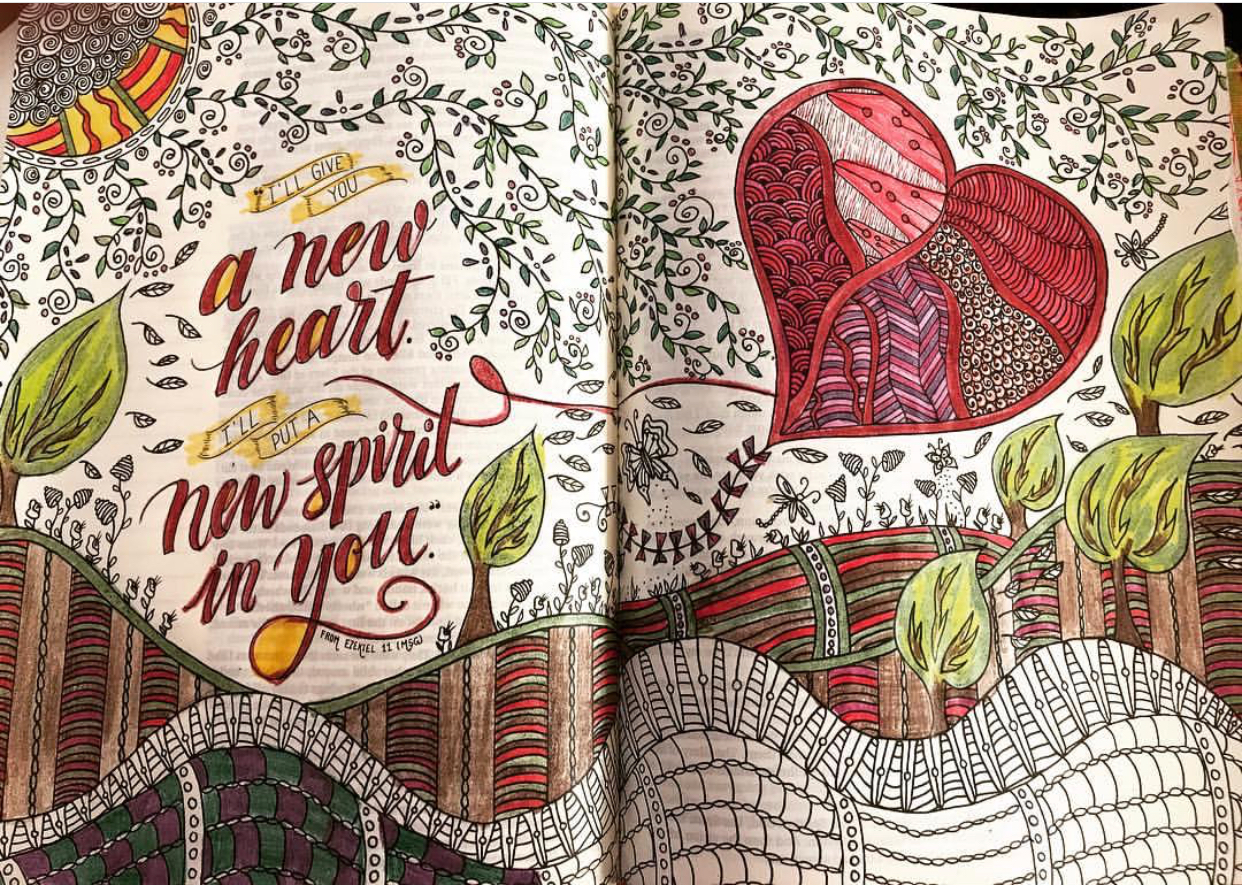 "I'LL GIVE
YOU
a new
heart.
I'LL
PUT A
new spirit
in you."
FROM EZEKIEL 11 (MSG)